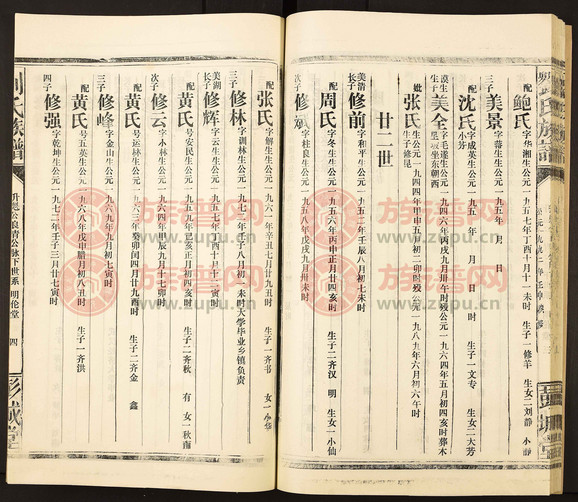 配 鲍氏 字华湘生公元一九五七年丁酉十月十一未时 生子一修羊 生女二刘静 小静
三子 美景 字蕃生生公元一九五 年 月 日
配 沈氏 字成英生公元一九五 年 月 日 时 生子一文专 生女一大芳
小芳
美全 字毛逢生公元一九四六年丙戌九月卅午时殁公元一九六四年五月初四亥时葬木
坐东朝西
妣 张氏 生公元一九四四年甲申五月初二卯时殁公元一九八九年六月初六午时
生子修昆
廿二世
美清长子 修前 字和平生公元一九五二年壬辰八月初七未时
配 周氏 字冬生生公元一九五六年丙申正月廿四亥时 生子二齐汉 明 生女一小仙
次子 修 字柱良生公元一九五八年戊戌九月廿八未时
配 张氏 字解生生公元一九六一年辛丑七月廿九丑时 生子一齐书 女一小华
三子 修林 字训林生公元一九七二年壬子八月初一未时大学毕业乡镇负责
美湖长子 修辉 字云生生公元一九五七年丁酉十月十二寅时
配 黄氏 号安民生公元一九五九年己亥正月初四亥时 生子二齐秋 有 女一秋南
次子 修云 字小林生公元一九六四年甲辰九月十七卯时
配 黄氏 号运 生公元一九六三年癸卯闰四月廿九酉时 生子二齐金 鑫
三子 修峰 字金山生公元一九六九年九月初七寅时
配 黄氏 号五英生公元一九六八年戊申腊月初八丑时 生子一齐洪
四子 修强 字乾坤生公元一九七二年壬子三月廿七寅时
氏族谱
升恩公良青公脉下世系 明伦堂 四
彭城堂
族谱网
www.zupu.cn
族谱网
www.zupu.cn